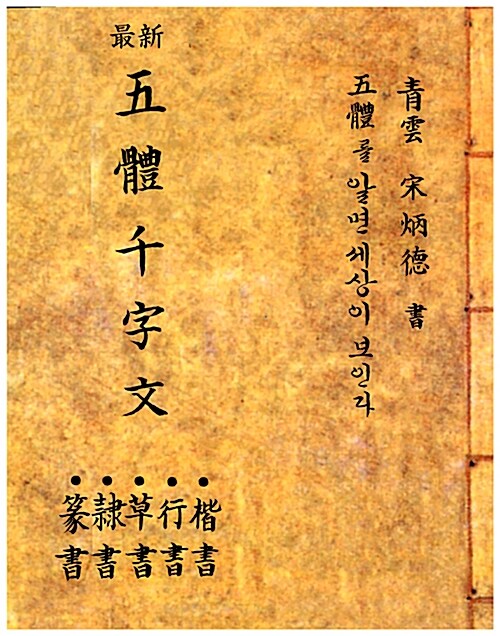 青雲 宋炳德 書
五體를 알면 세상이 보인다
最新
五體千字文
楷書
行書
草書
隷書
篆書